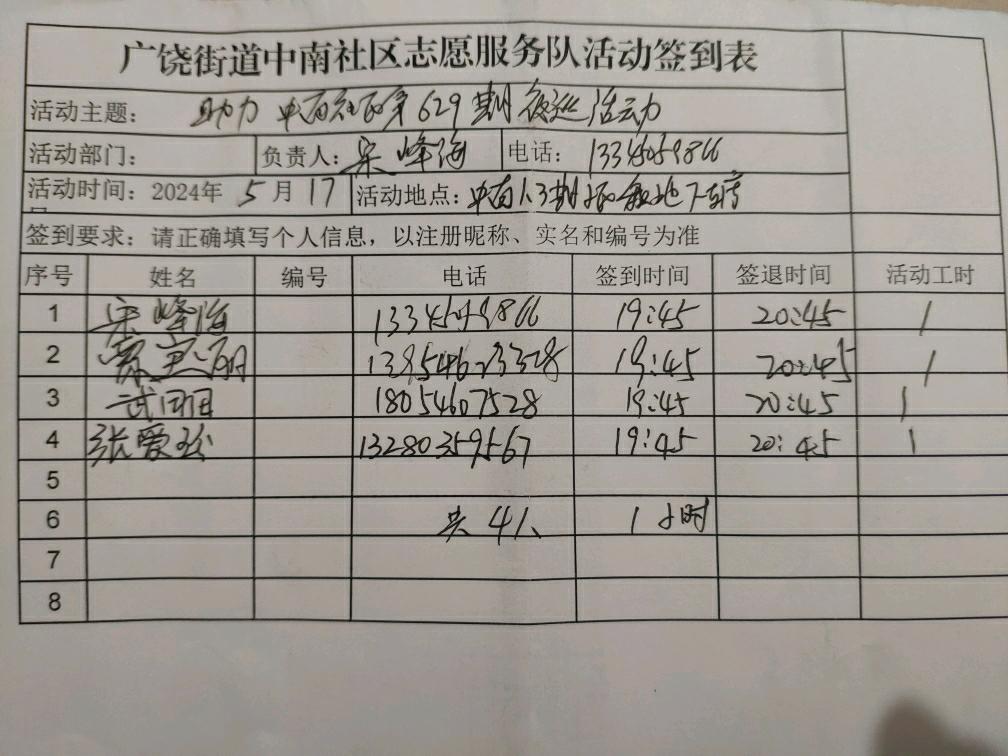 广饶街道中南社区志愿服务队活动签到表
活动主题： 助力中南社区第629期夜巡活动
活动部门： 负责人：宋峰海 电话：
活动时间：2024年5月17 活动地点：中南1.3期
签到要求：请正确填写个人信息，以注册昵称、实名和编号为准
序号 姓名 编号 电话 签到时间 签退时间 活动工时
1 宋峰海 19:45 20:45 1
2 13854623328 19:45 20:45 1
3 18054607528 19:45 20:45 1
4 张爱玲 13280359567 19:45 20:45 1
5
6 共4人 1小时
7
8